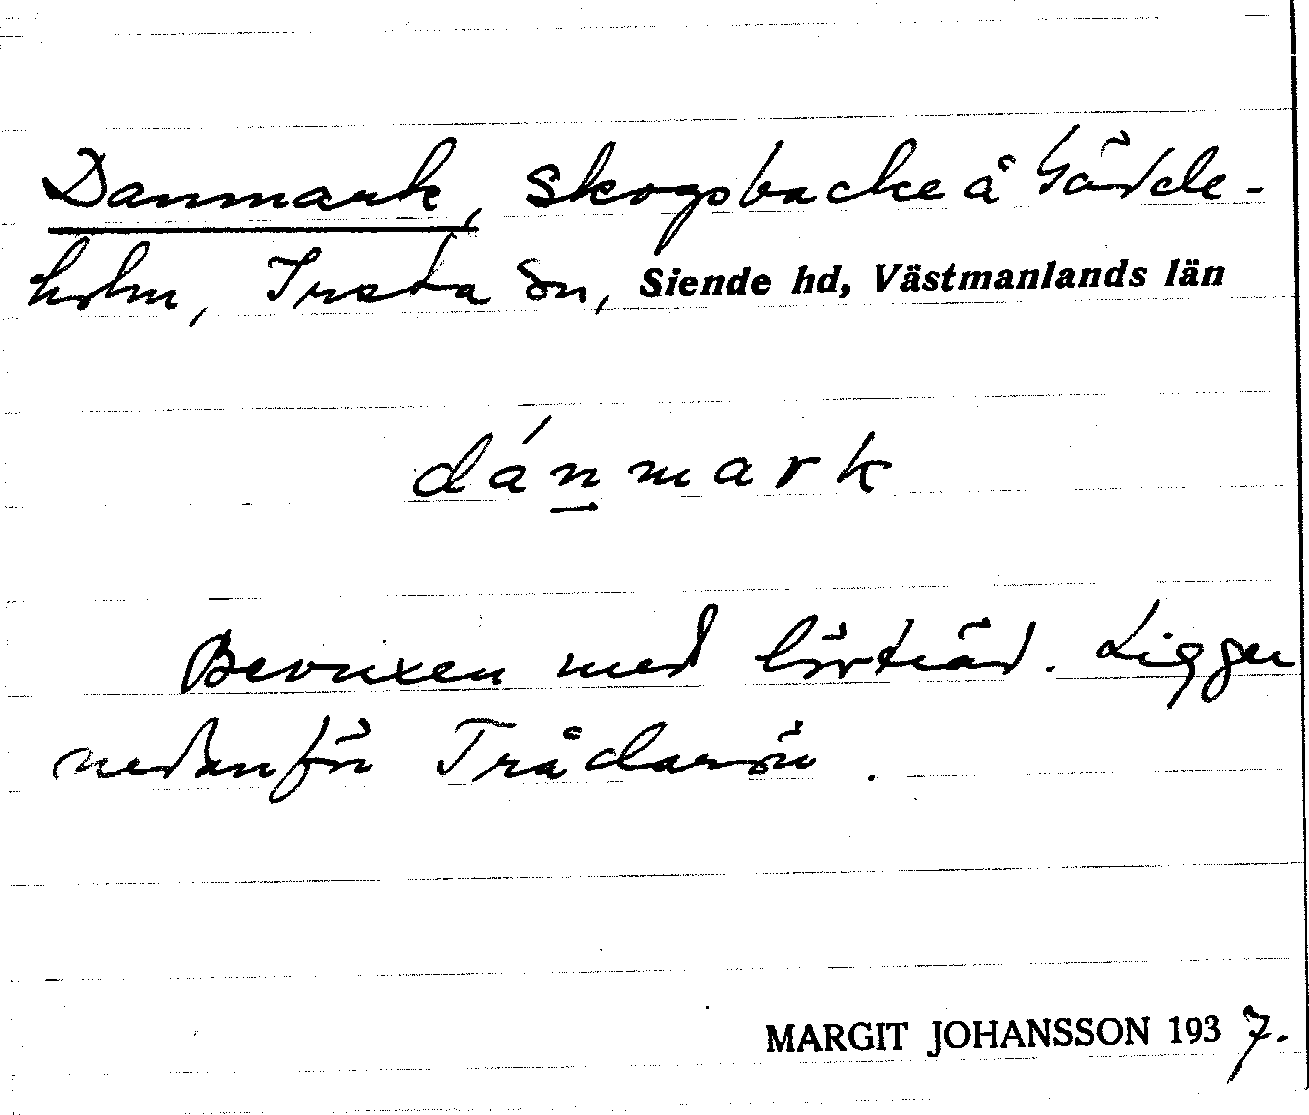 Danmark, skogsbacke å Gädde-
holm, Irsta sn, Siende hd, Västmanlands län
dánmark
Bevuxen med lövträd. Ligger
nedanför Trådarön.
MARGIT JOHANSSON 1937.